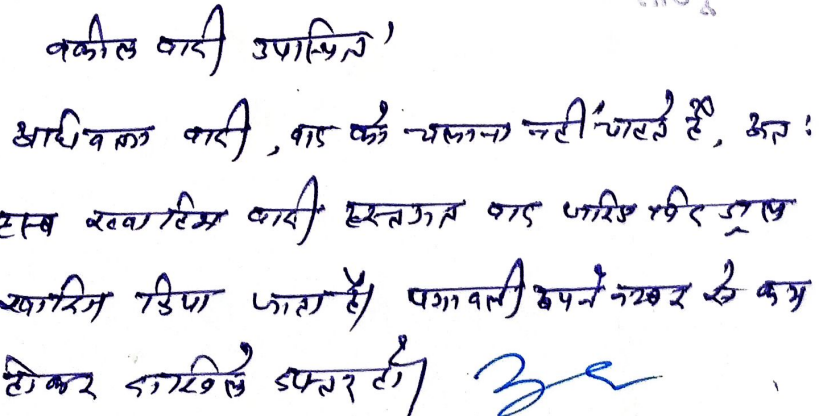 वकील वादी उपस्थित।
अधिवक्ता वादी, वाद को चलाना नहीं चाहते हैं, अतः
हस्ब ख्वाहिश वादी हस्तगत वाद जरिये विड्राल
खारिज किया जाता है। पत्रावली अपने नम्बर से कम
होकर दाखिल दफ्तर हो।